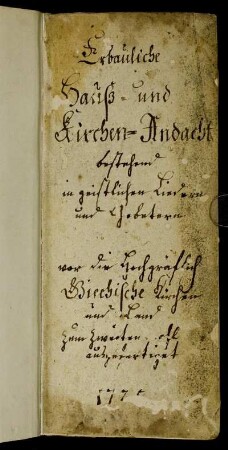 Erbauliche
Hauß- und
Kirchen-Andacht
bestehend
in geistlichen Liedern
und Gebetern
vor die Hochgräflich
Giechische Kirchen
und Land
zum zweiten
ausgefertiget